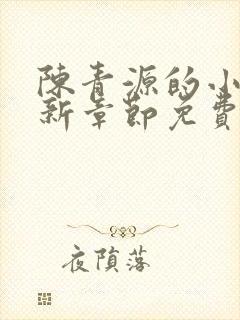 陳青源的小
新章節免費
夜隕落